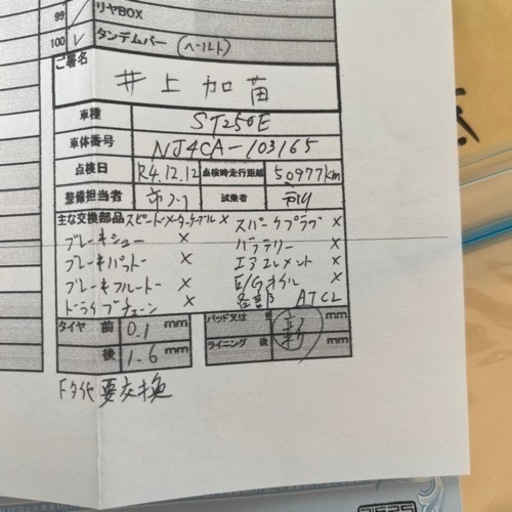 99 リヤBOX
100 レ タンデムバー (ベルト)
ご署名
井上加苗
車種 ST250E
車体番号 NJ4CA-103165
点検日 R4.12.12 点検時走行距離 50977km
整備担当者 試乗者
主な交換部品 スピードメーターケーブル × スパークプラグ ×
ブレーキシュー × バッテリー ×
ブレーキパット × エアエレメント ×
ブレーキフルード × E/Gオイル ×
ドライブチェーン × 各部 ATCL
タイヤ 前 0.1 mm パッド又は mm
後 1.6 mm ライニング 後 新 mm
Fタイヤ要交換